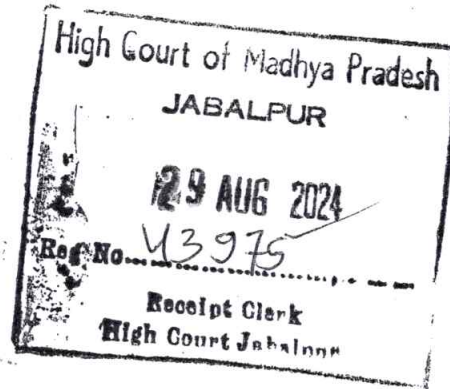 High Court of Madhya Pradesh
JABALPUR
29 AUG 2024
Reg No. 43975
Receipt Clerk
High Court Jabalpur